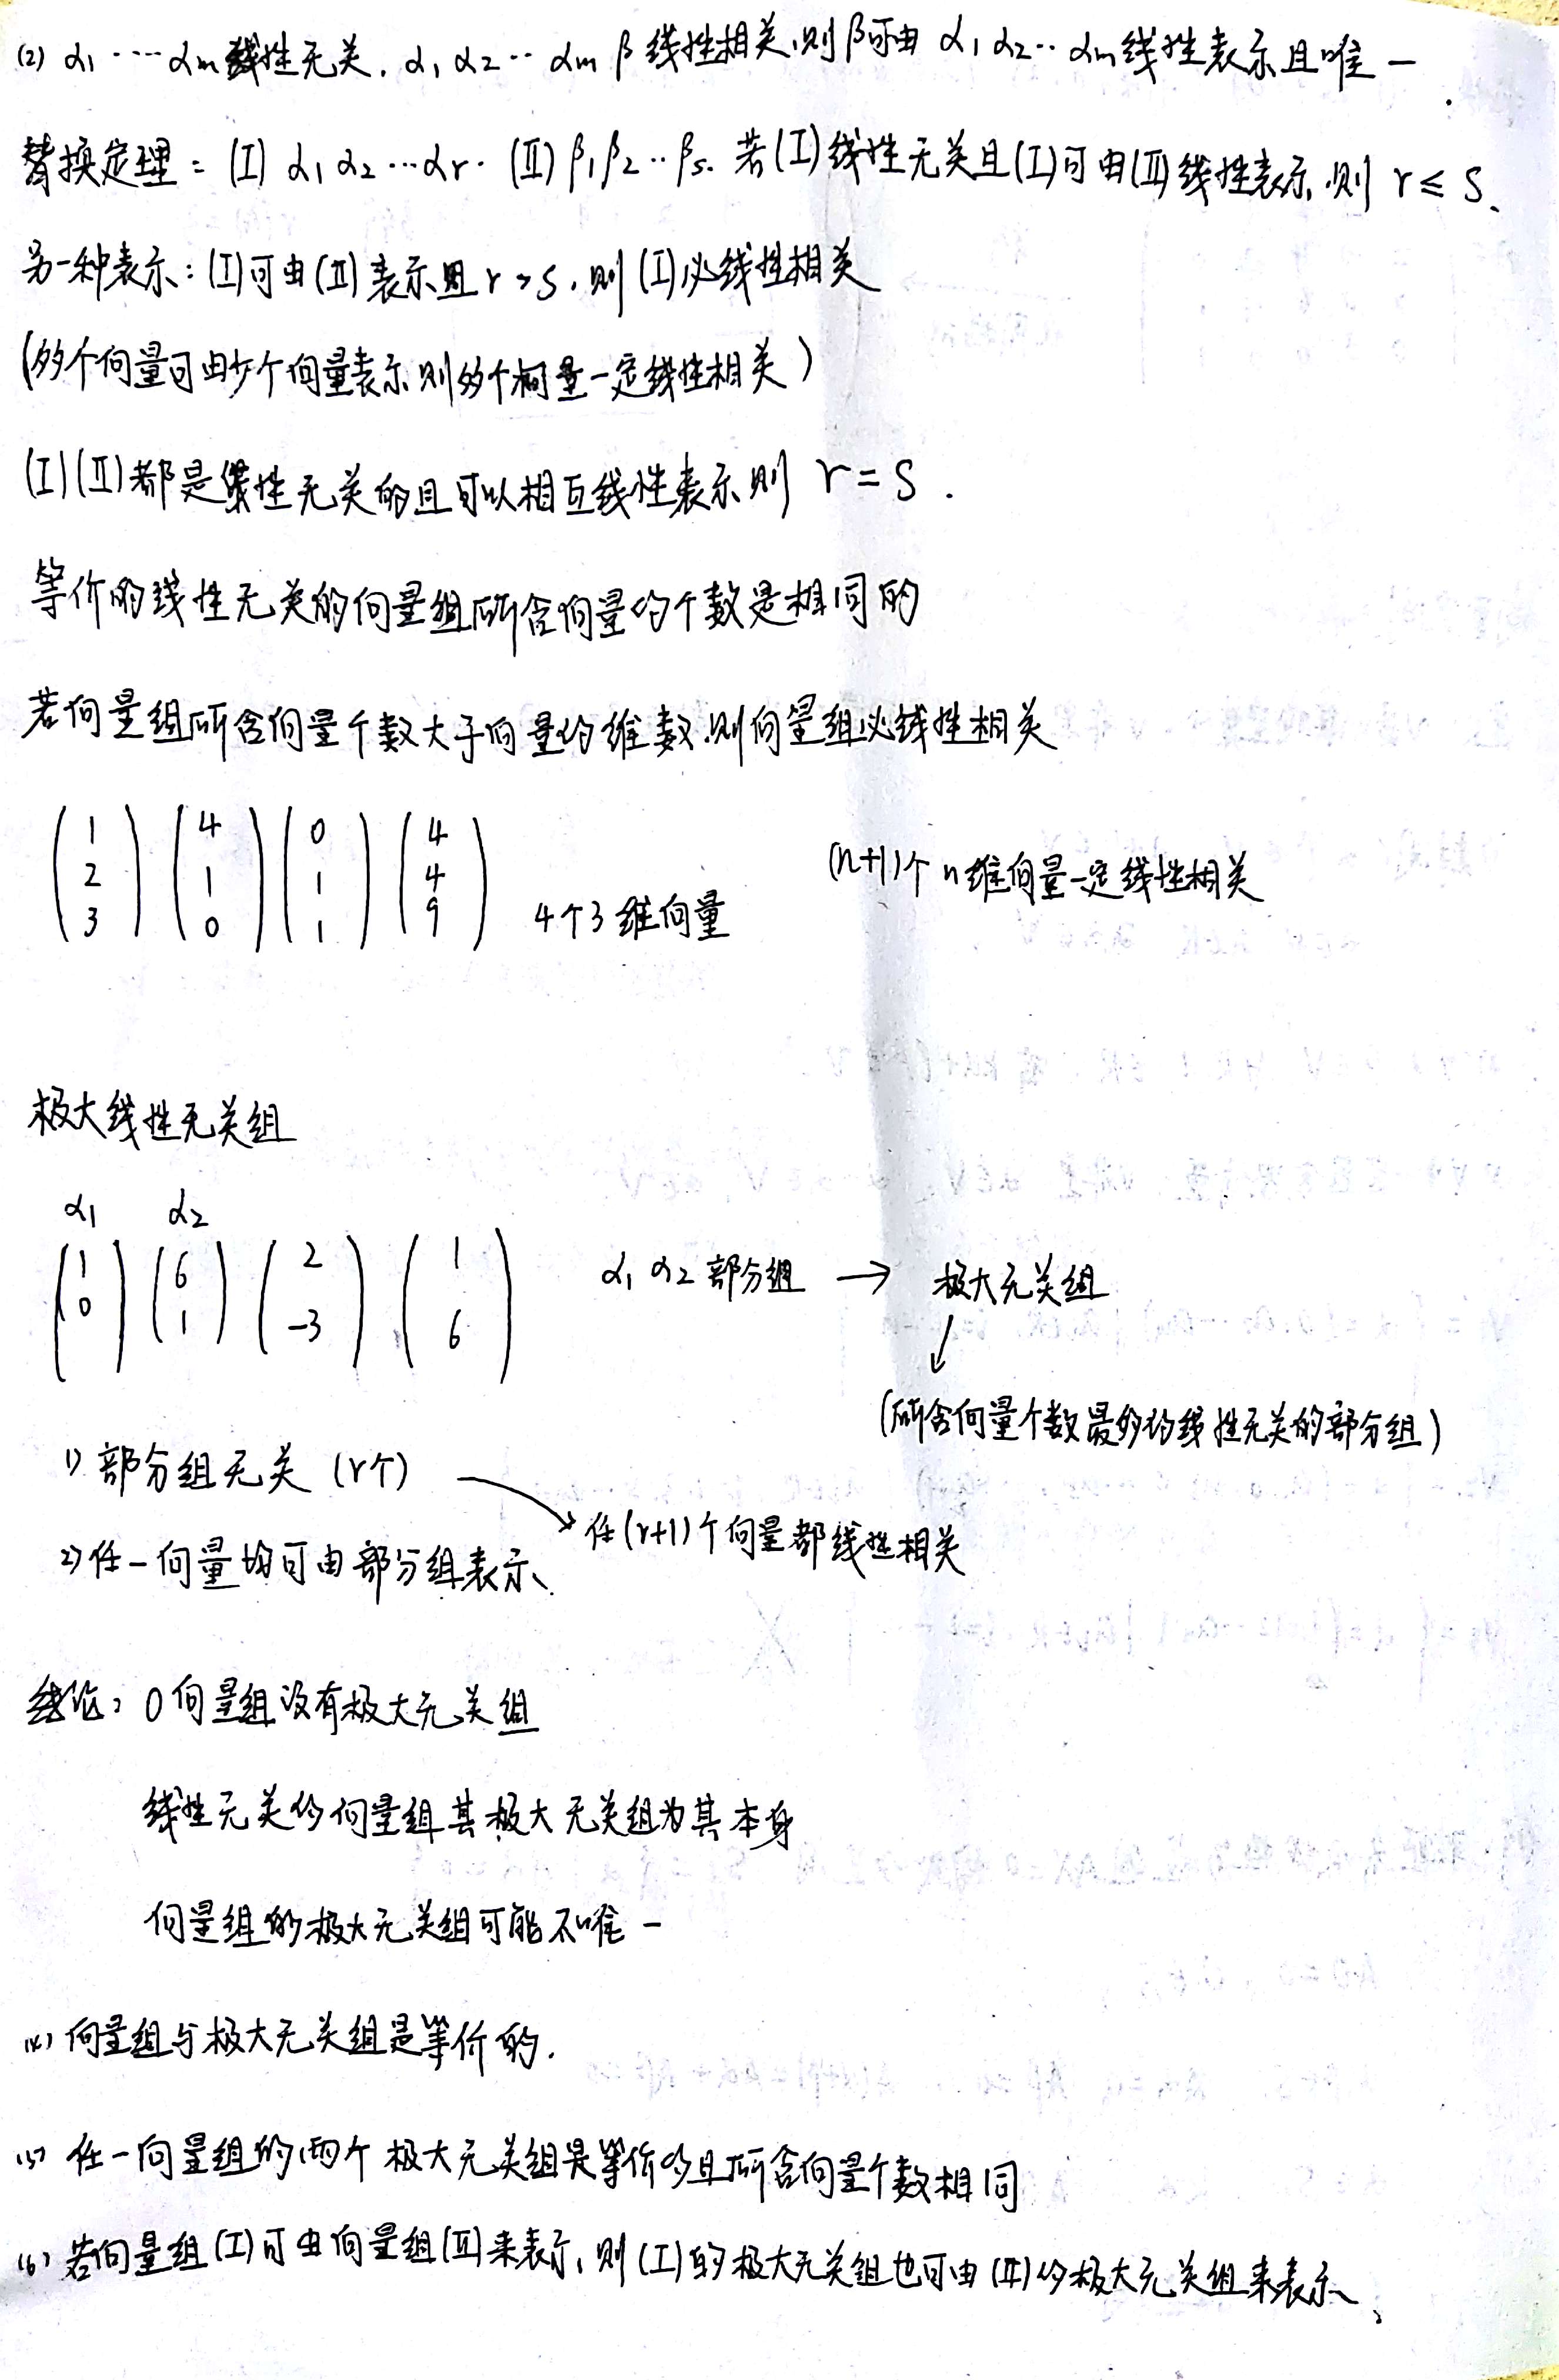 (2) α₁ ⋯⋯ αₘ线性无关, α₁ α₂ ⋯ αₘ β 线性相关,则β可由 α₁ α₂ ⋯ αₘ线性表示且唯一.
替换定理: (Ⅰ) α₁ α₂ ⋯ αᵣ. (Ⅱ) β₁ β₂ ⋯ βₛ. 若(Ⅰ)线性无关且(Ⅰ)可由(Ⅱ)线性表示,则 r ≤ s.
另一种表示: (Ⅰ)可由(Ⅱ)表示且 r > s, 则(Ⅰ)必线性相关
(多个向量可由少个向量表示,则多个向量一定线性相关)
(Ⅰ)(Ⅱ)都是线性无关的且可以相互线性表示则 r = s.
等价的线性无关的向量组所含向量的个数是相同的
若向量组所含向量个数大于向量的维数,则向量组必线性相关
(1 2 3) (4 1 0) (0 1 1) (4 4 9) 4个3维向量 (n+1)个n维向量一定线性相关
极大线性无关组
α₁ α₂
(1 0) (6 1) (2 -3) (1 6) α₁ α₂ 部分组 → 极大无关组
↓
(所含向量个数最多的线性无关的部分组)
1) 部分组无关 (r个)
→ 任(r+1)个向量都线性相关
2) 任一向量均可由部分组表示.
结论: 0向量组没有极大无关组
线性无关的向量组其极大无关组为其本身
向量组的极大无关组可能不唯一
(4) 向量组与极大无关组是等价的.
(5) 任一向量组的两个极大无关组是等价的且所含向量个数相同
(6) 若向量组(Ⅰ)可由向量组(Ⅱ)来表示, 则(Ⅰ)的极大无关组也可由(Ⅱ)的极大无关组来表示.